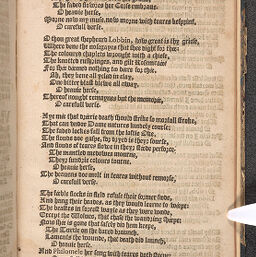 The faded flowres her Corse embraue.
O heauie herse,
Morne now my muse, now morne with teares besprint,
O carefull verse.
O thou great shepheard Lobbin, how great is thy griefe,
Where bene the nosegayes that she dight for thee:
The coloured chaplets wrought with a chiefe,
The knotted rushrings, and gilt Rosemaree?
For she deemed nothing too deere for thee.
Ah, they bene all yclad in clay,
One bitter blast blewe all away.
O heauie herse,
Thereof nought remaynes but the memoree,
O carefull verse.
Aye me that dreerie death should strike so mortall stroke,
That can vndoe Dame natures kindly course:
The faded lockes fall from the loftie Oke,
The flouds doe gaspe, for dryed is theyr sourse,
And flouds of teares flowe in theyr stede perforse.
The mantled medowes mourne,
Theyr sundrie colours tourne.
O heauie herse,
The heauens doe melt in teares without remorse,
O carefull verse.
The feeble flocks in field refuse their former foode,
And hang their heades, as they would learne to weepe:
The beastes in forrest wayle as they were woode,
Except the Wolues, that chase the wandring sheepe:
Now she is gone that safely did hem keepe,
The Turtle on the bared braunch,
Laments the wounde, that death did launch,
O heauie herse,
And Philomele her song with teares doth steepe